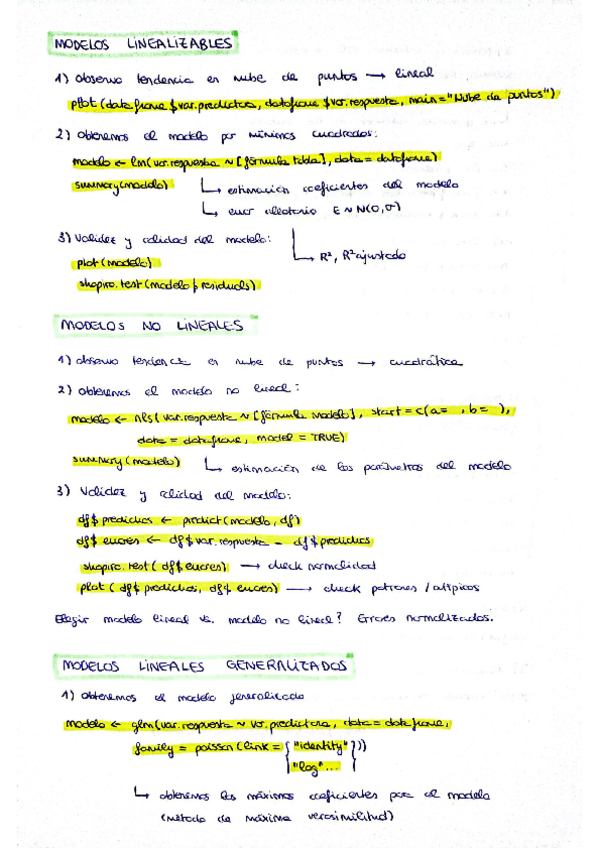 MODELOS LINEALIZABLES
1) Observo tendencia en nube de puntos → lineal
plot (dataframe $ var.predictora, dataframe $ var.respuesta, main = "Nube de puntos")
2) Obtenemos el modelo por mínimos cuadrados:
modelo ← lm (var.respuesta ~ [fórmula tabla], data = dataframe)
summary(modelo) ↳ estimación coeficientes del modelo
↳ error aleatorio E ~ N(0,σ)
3) Validez y calidad del modelo:
↳ R², R² ajustado
plot (modelo)
shapiro.test (modelo $ residuals)
MODELOS NO LINEALES
1) Observo tendencia en nube de puntos → cuadrática
2) Obtenemos el modelo no lineal:
modelo ← nls (var.respuesta ~ [fórmula modelo], start = c(a= , b= ),
data = dataframe, model = TRUE)
summary (modelo) ↳ estimación de los parámetros del modelo
3) Validez y calidad del modelo:
df$ predichos ← predict (modelo, df)
df$ errores ← df$ var.respuesta - df$ predichos
shapiro.test (df$ errores) → check normalidad
plot ( df$ predichos, df$ errores) → check patrones / atípicos
Elegir modelo lineal vs. modelo no lineal? Errores normalizados.
MODELOS LINEALES GENERALIZADOS
1) Obtenemos el modelo generalizado
modelo ← glm (var.respuesta ~ var.predictora, data = dataframe,
family = poisson (link = { "identity" }))
"log"...
↳ obtenemos los máximos coeficientes para el modelo
(método de máxima verosimilitud)